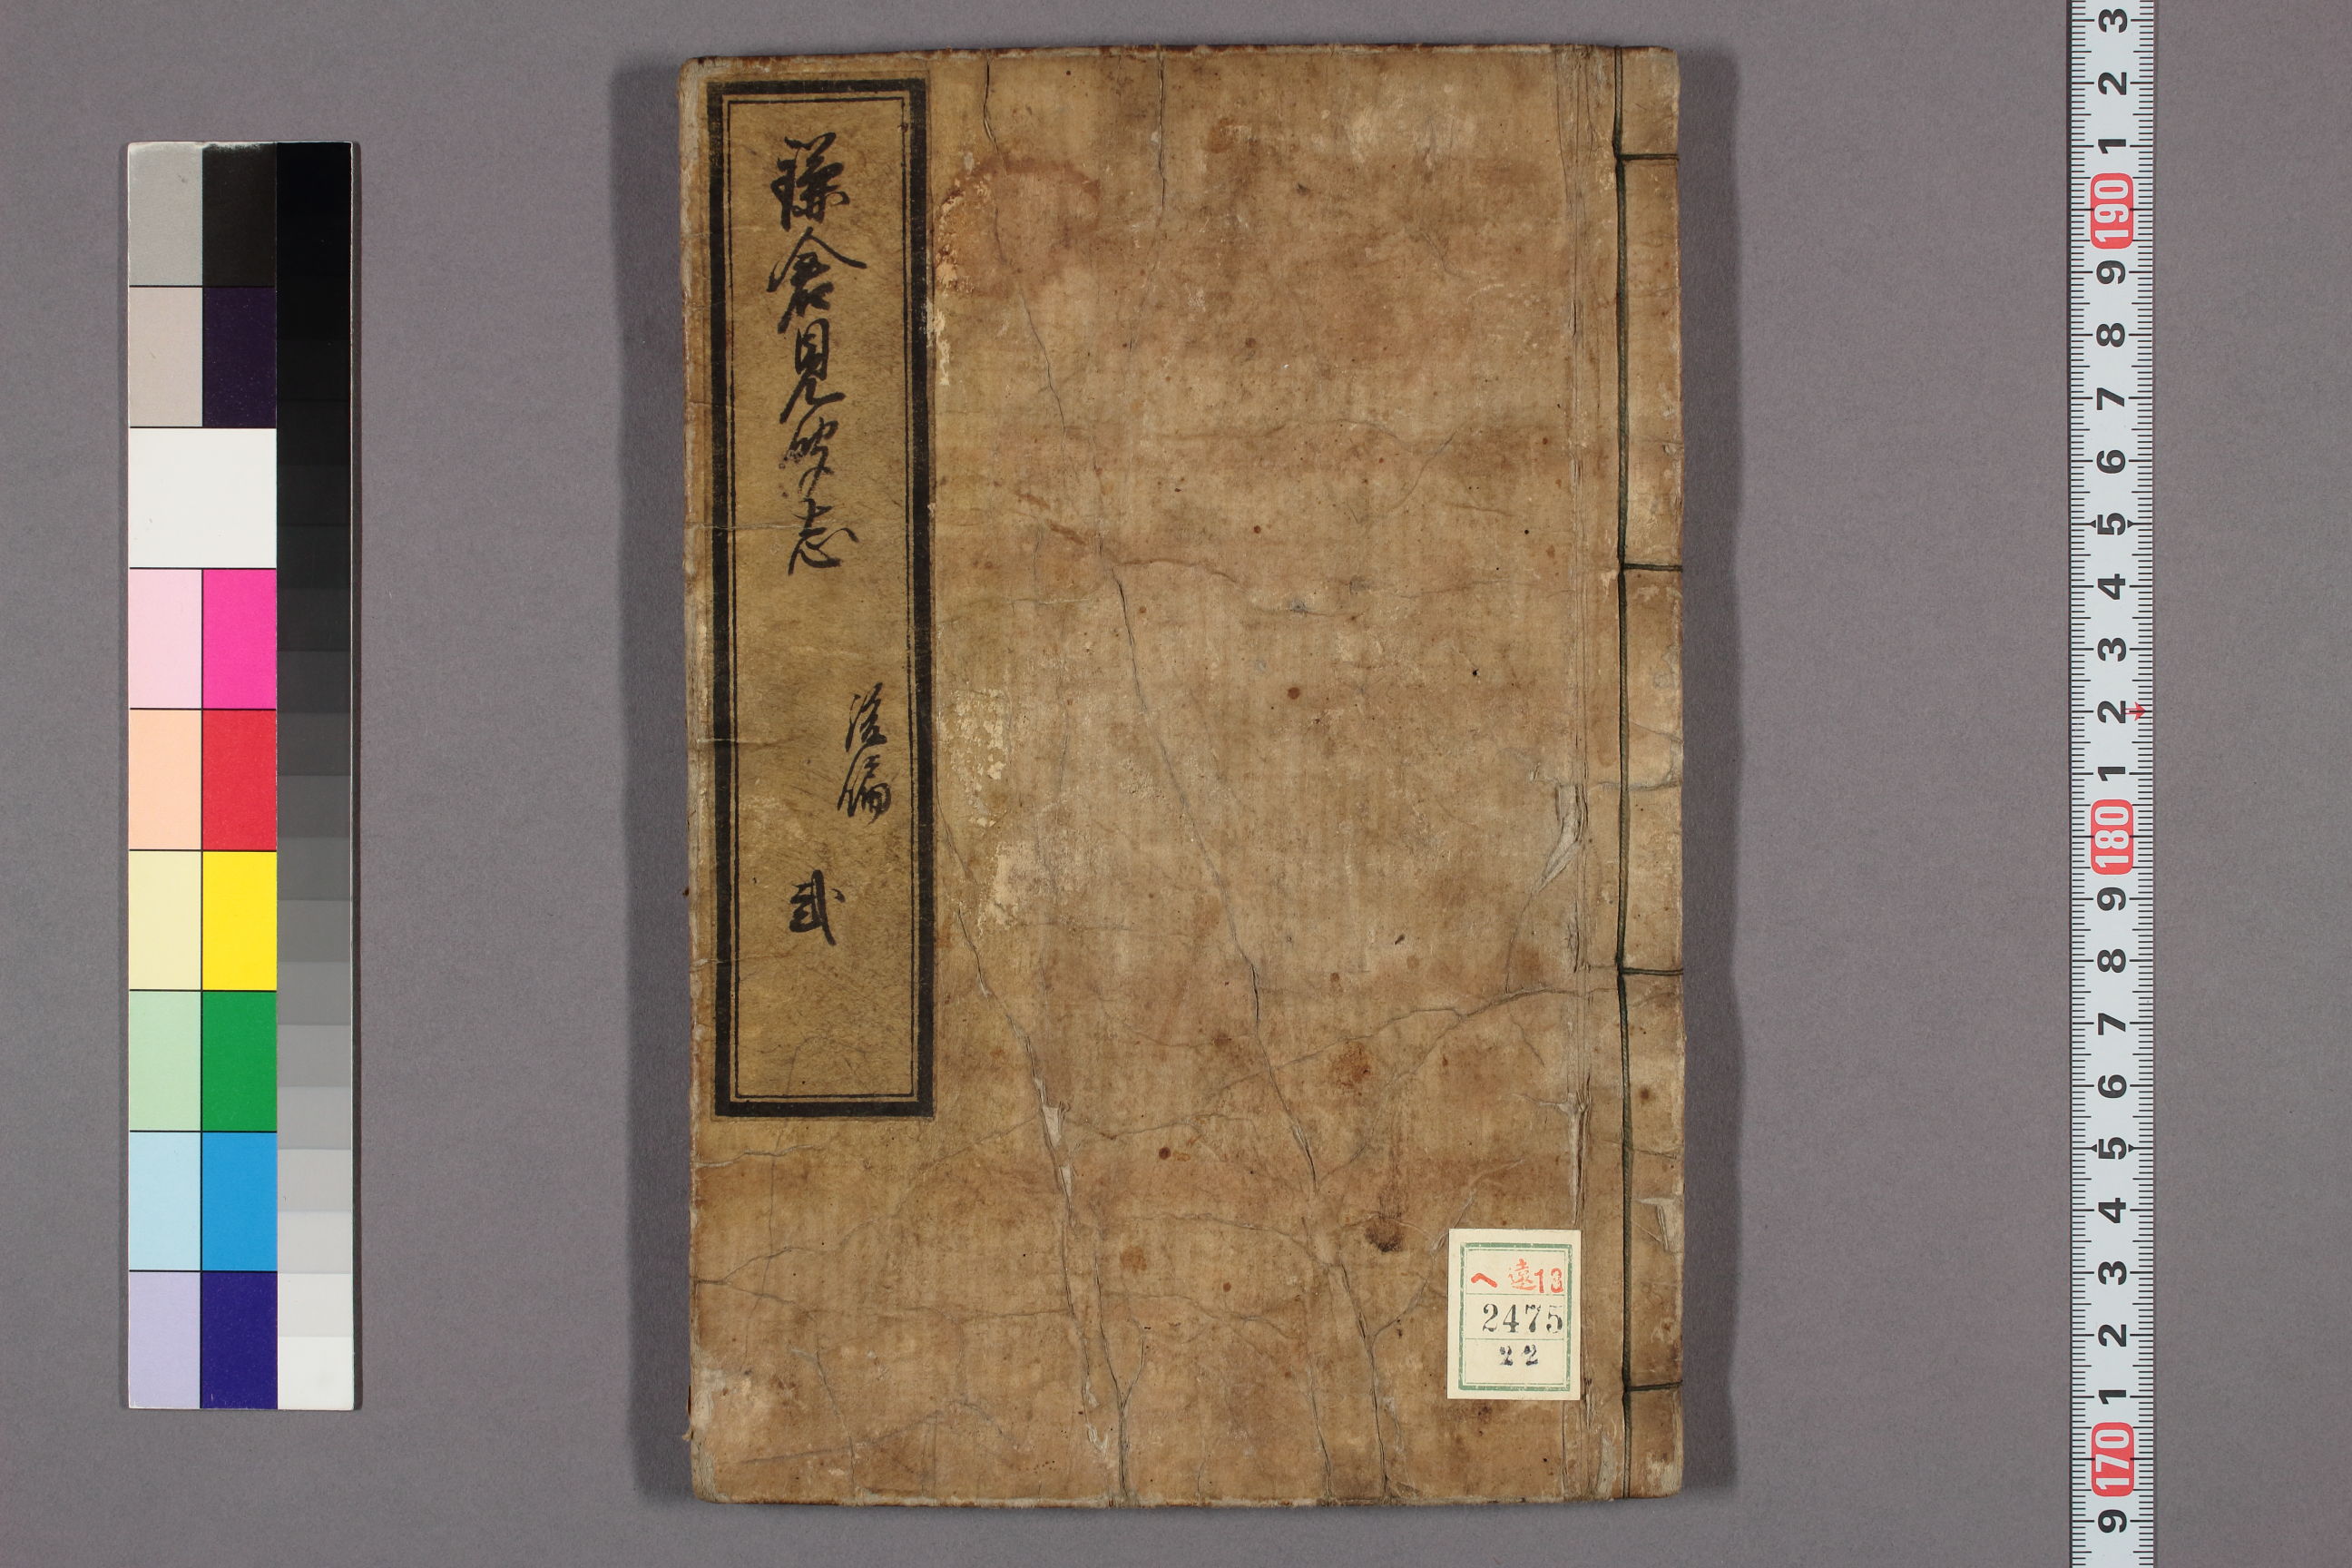 鎌倉見聞志
後編
弐
ヘ 遠13
2475
22
3 2 1 190 9 8 7 6 5 4 3 2 1 180 9 8 7 6 5 4 3 2 1 170 9